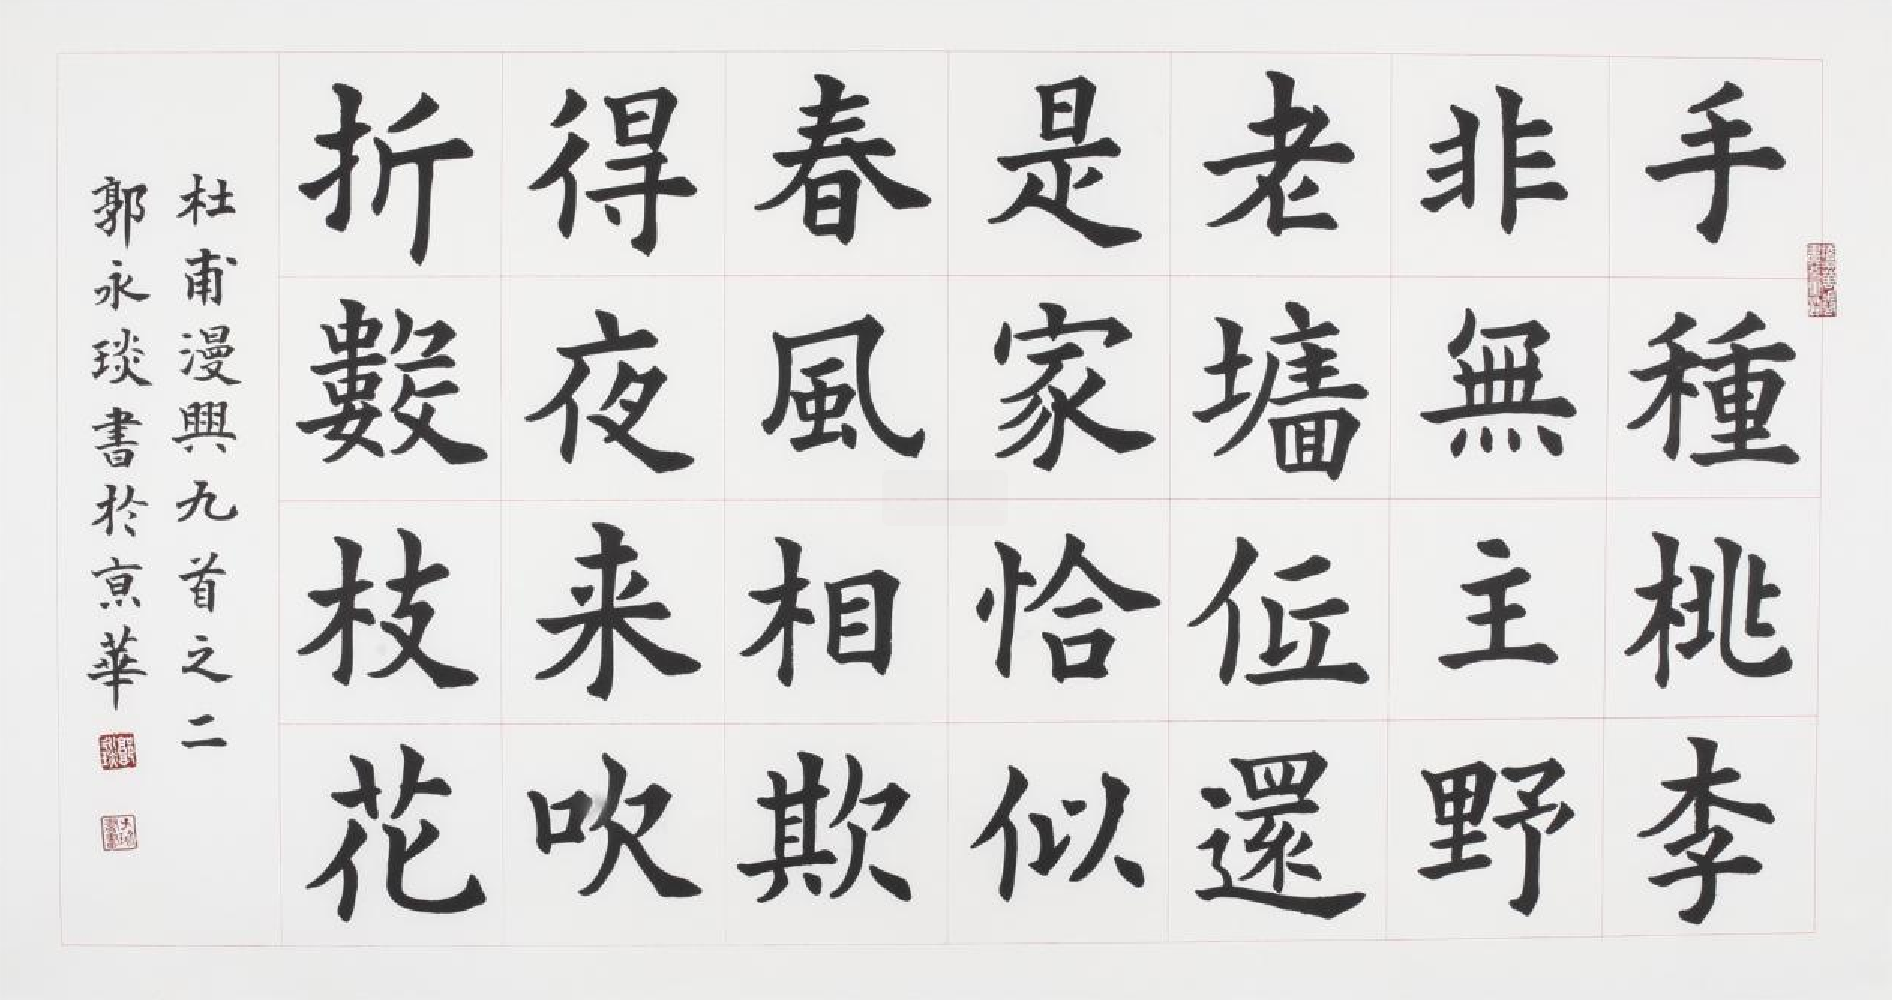 手種桃李
非無主野
老墻低還
是家恰似
春風相欺
得夜来吹
折數枝花
杜甫漫興九首之二
郭永琰書於京華